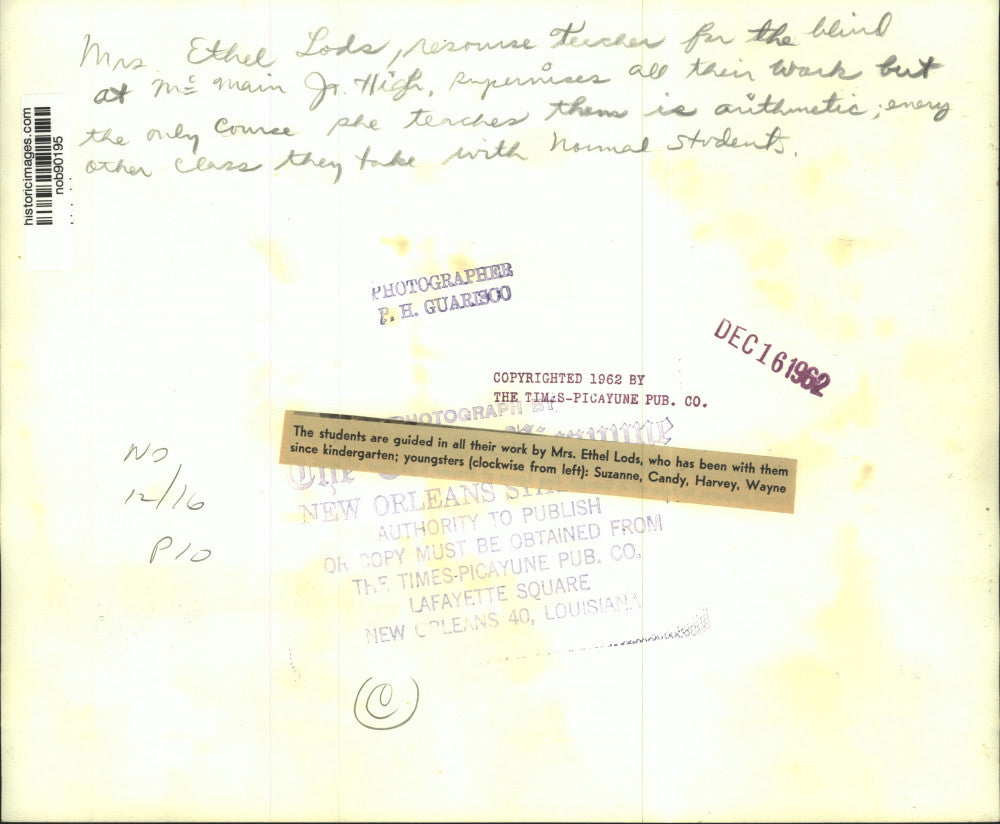 Mrs. Ethel Lods, resourse teacher for the blind
at Mc Main Jr. High, supervises all their work but
the only course she teaches them is arithmetic; every
other class they take with normal students.
historicimages.com
nob90195
PHOTOGRAPHER
P. H. GUARISCO
DEC 16 1962
COPYRIGHTED 1962 BY
THE TIMES-PICAYUNE PUB. CO.
PHOTOGRAPH BY
The
The students are guided in all their work by Mrs. Ethel Lods, who has been with them
since kindergarten; youngsters (clockwise from left): Suzanne, Candy, Harvey, Wayne
NEW ORLEANS
AUTHORITY TO PUBLISH
OR COPY MUST BE OBTAINED FROM
THE TIMES-PICAYUNE PUB. CO.
LAFAYETTE SQUARE
NEW ORLEANS 40, LOUISIANA
NO
12/16
P10
©